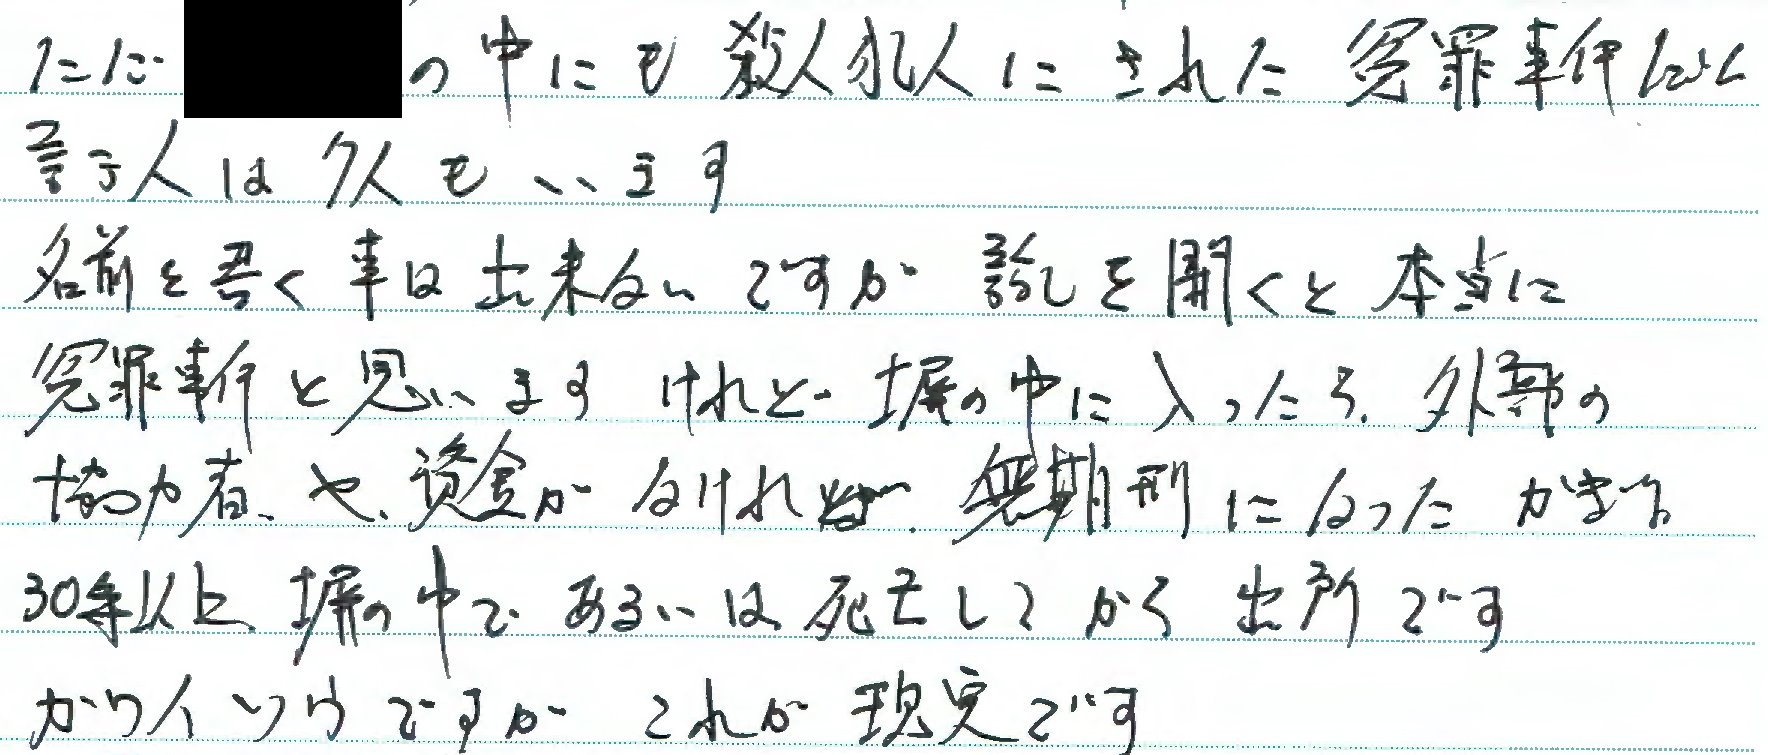 ただ の中にも殺人犯人にされた冤罪事件だと
言う人は 久人も います
名前を書く事は出来ないですが 話しを聞くと本当に
冤罪事件と思います けれど 塀の中に入ったら、外部の
協力者、や、資金が なければ、無期刑になった かぎり
30年以上、塀の中で あるいは 死亡してから 出所です
カワイソウですが これが 現実です